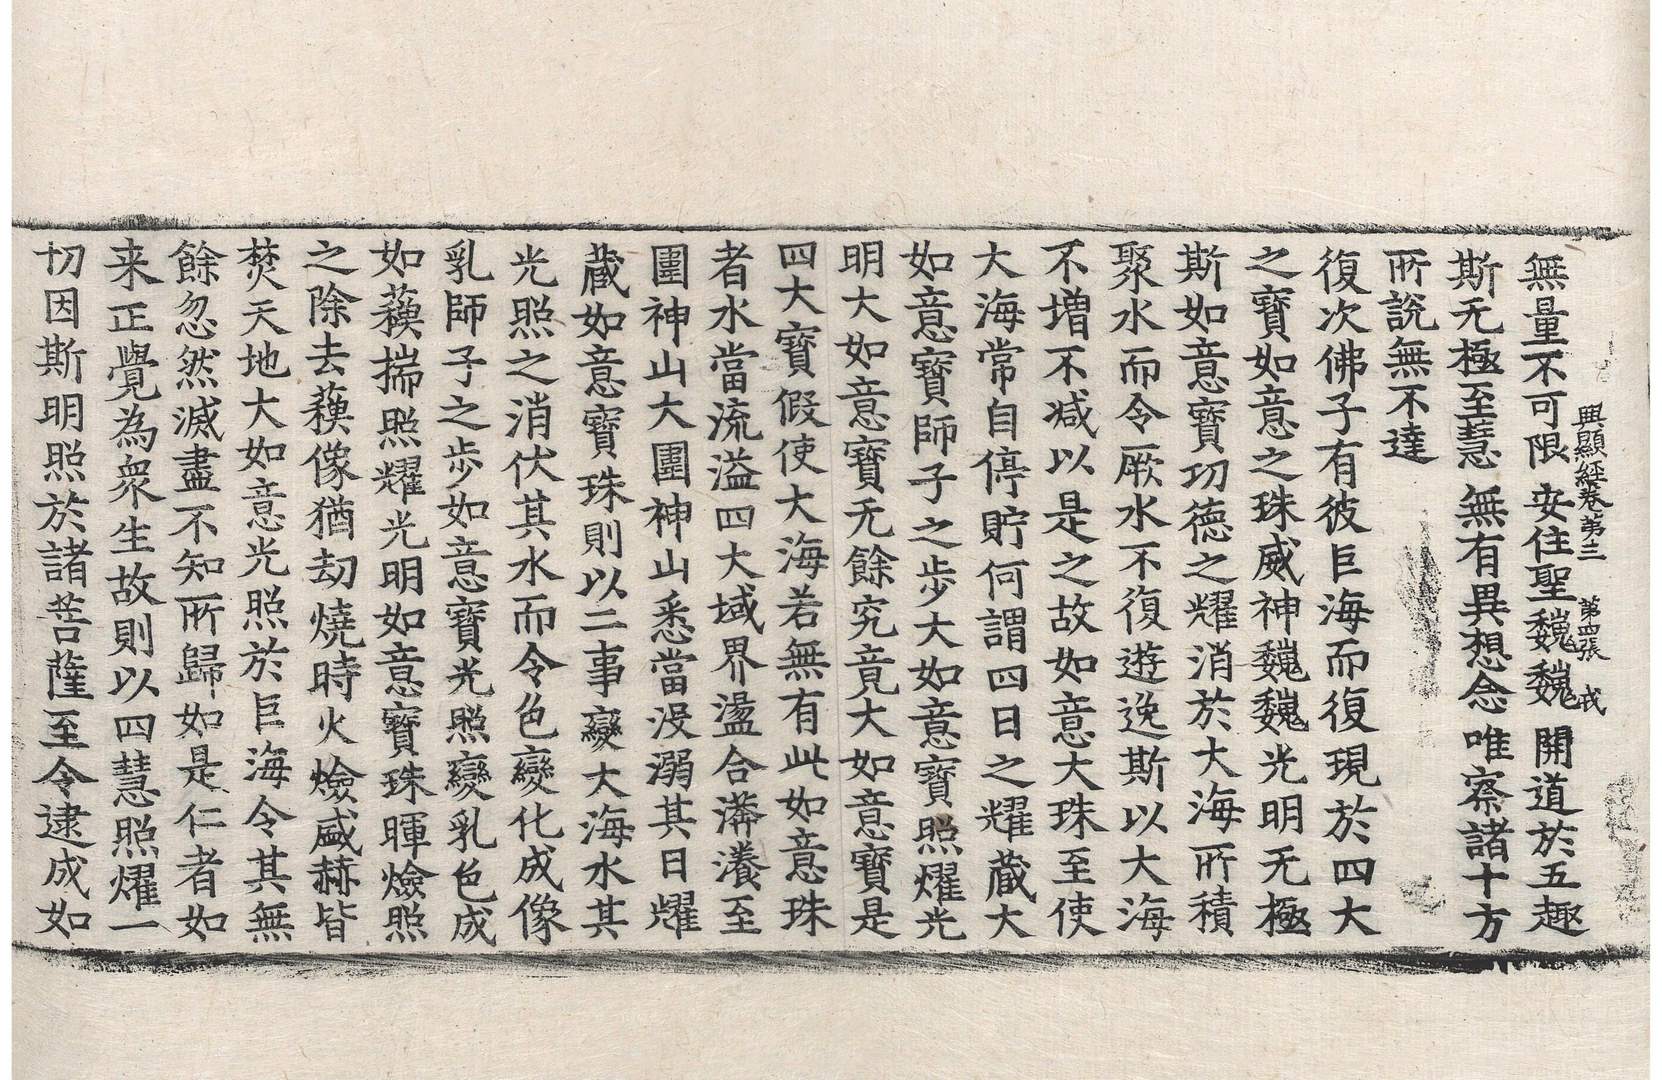 興顯經卷第三 第四張 戎
無量不可限 安住聖魏魏 開道於五趣
斯无極至慧 無有異想念 唯察諸十方
所說無不達
復次佛子有彼巨海而復現於四大
之寶如意之珠威神魏魏光明无極
斯如意寶功德之耀消於大海所積
聚水而令厥水不復遊逸斯以大海
不增不減以是之故如意大珠至使
大海常自停貯何謂四日之耀藏大
如意寶師子之步大如意寶照耀光
明大如意寶无餘究竟大如意寶是
四大寶假使大海若無有此如意珠
者水當流溢四大域界盪合滿瀁至
圍神山大圍神山悉當沒溺其日耀
藏如意寶珠則以二事變大海水其
光照之消伏其水而令色變化成像
乳師子之步如意寶光照變乳色成
如蘓揣照耀光明如意寶珠暉燄照
之除去蘓像猶劫燒時火燄盛赫皆
焚天地大如意光照於巨海令其無
餘忽然滅盡不知所歸如是仁者如
来正覺為衆生故則以四慧照燿一
切因斯明照於諸菩薩至令逮成如